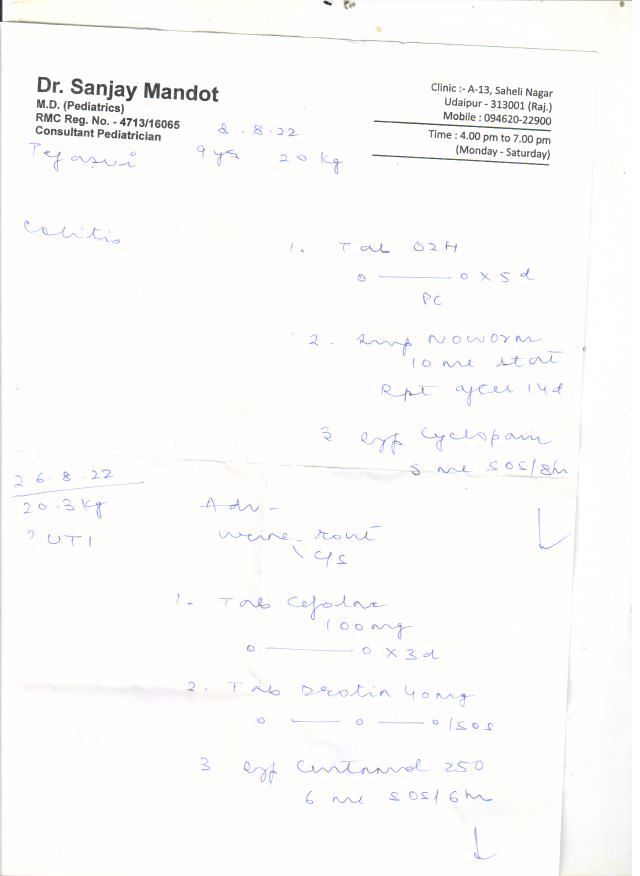 Dr. Sanjay Mandot
M.D. (Pediatrics)
RMC Reg. No. - 4713/16065
Consultant Pediatrician
Clinic :- A-13, Saheli Nagar
Udaipur - 313001 (Raj.)
Mobile : 094620-22900
Time : 4.00 pm to 7.00 pm
(Monday - Saturday)
2.8.22
Tejasvi 9 ys 20 kg
Colitis
1. Tab O2H
o — o x 5 d
PC
2. Susp Noworm
10 ml stat
Rpt after 14d
3 Syp Cyclopam
5 ml SOS/8h
26.8.22
20.3 kg
? UTI
Adv -
Urine rout
\ C/S
1- Tab Cefolac
100mg
o — o x 3 d
2. Tab Drotin 40mg
o — o — o/SOS
3 Syp 250
6 ml SOS/6h